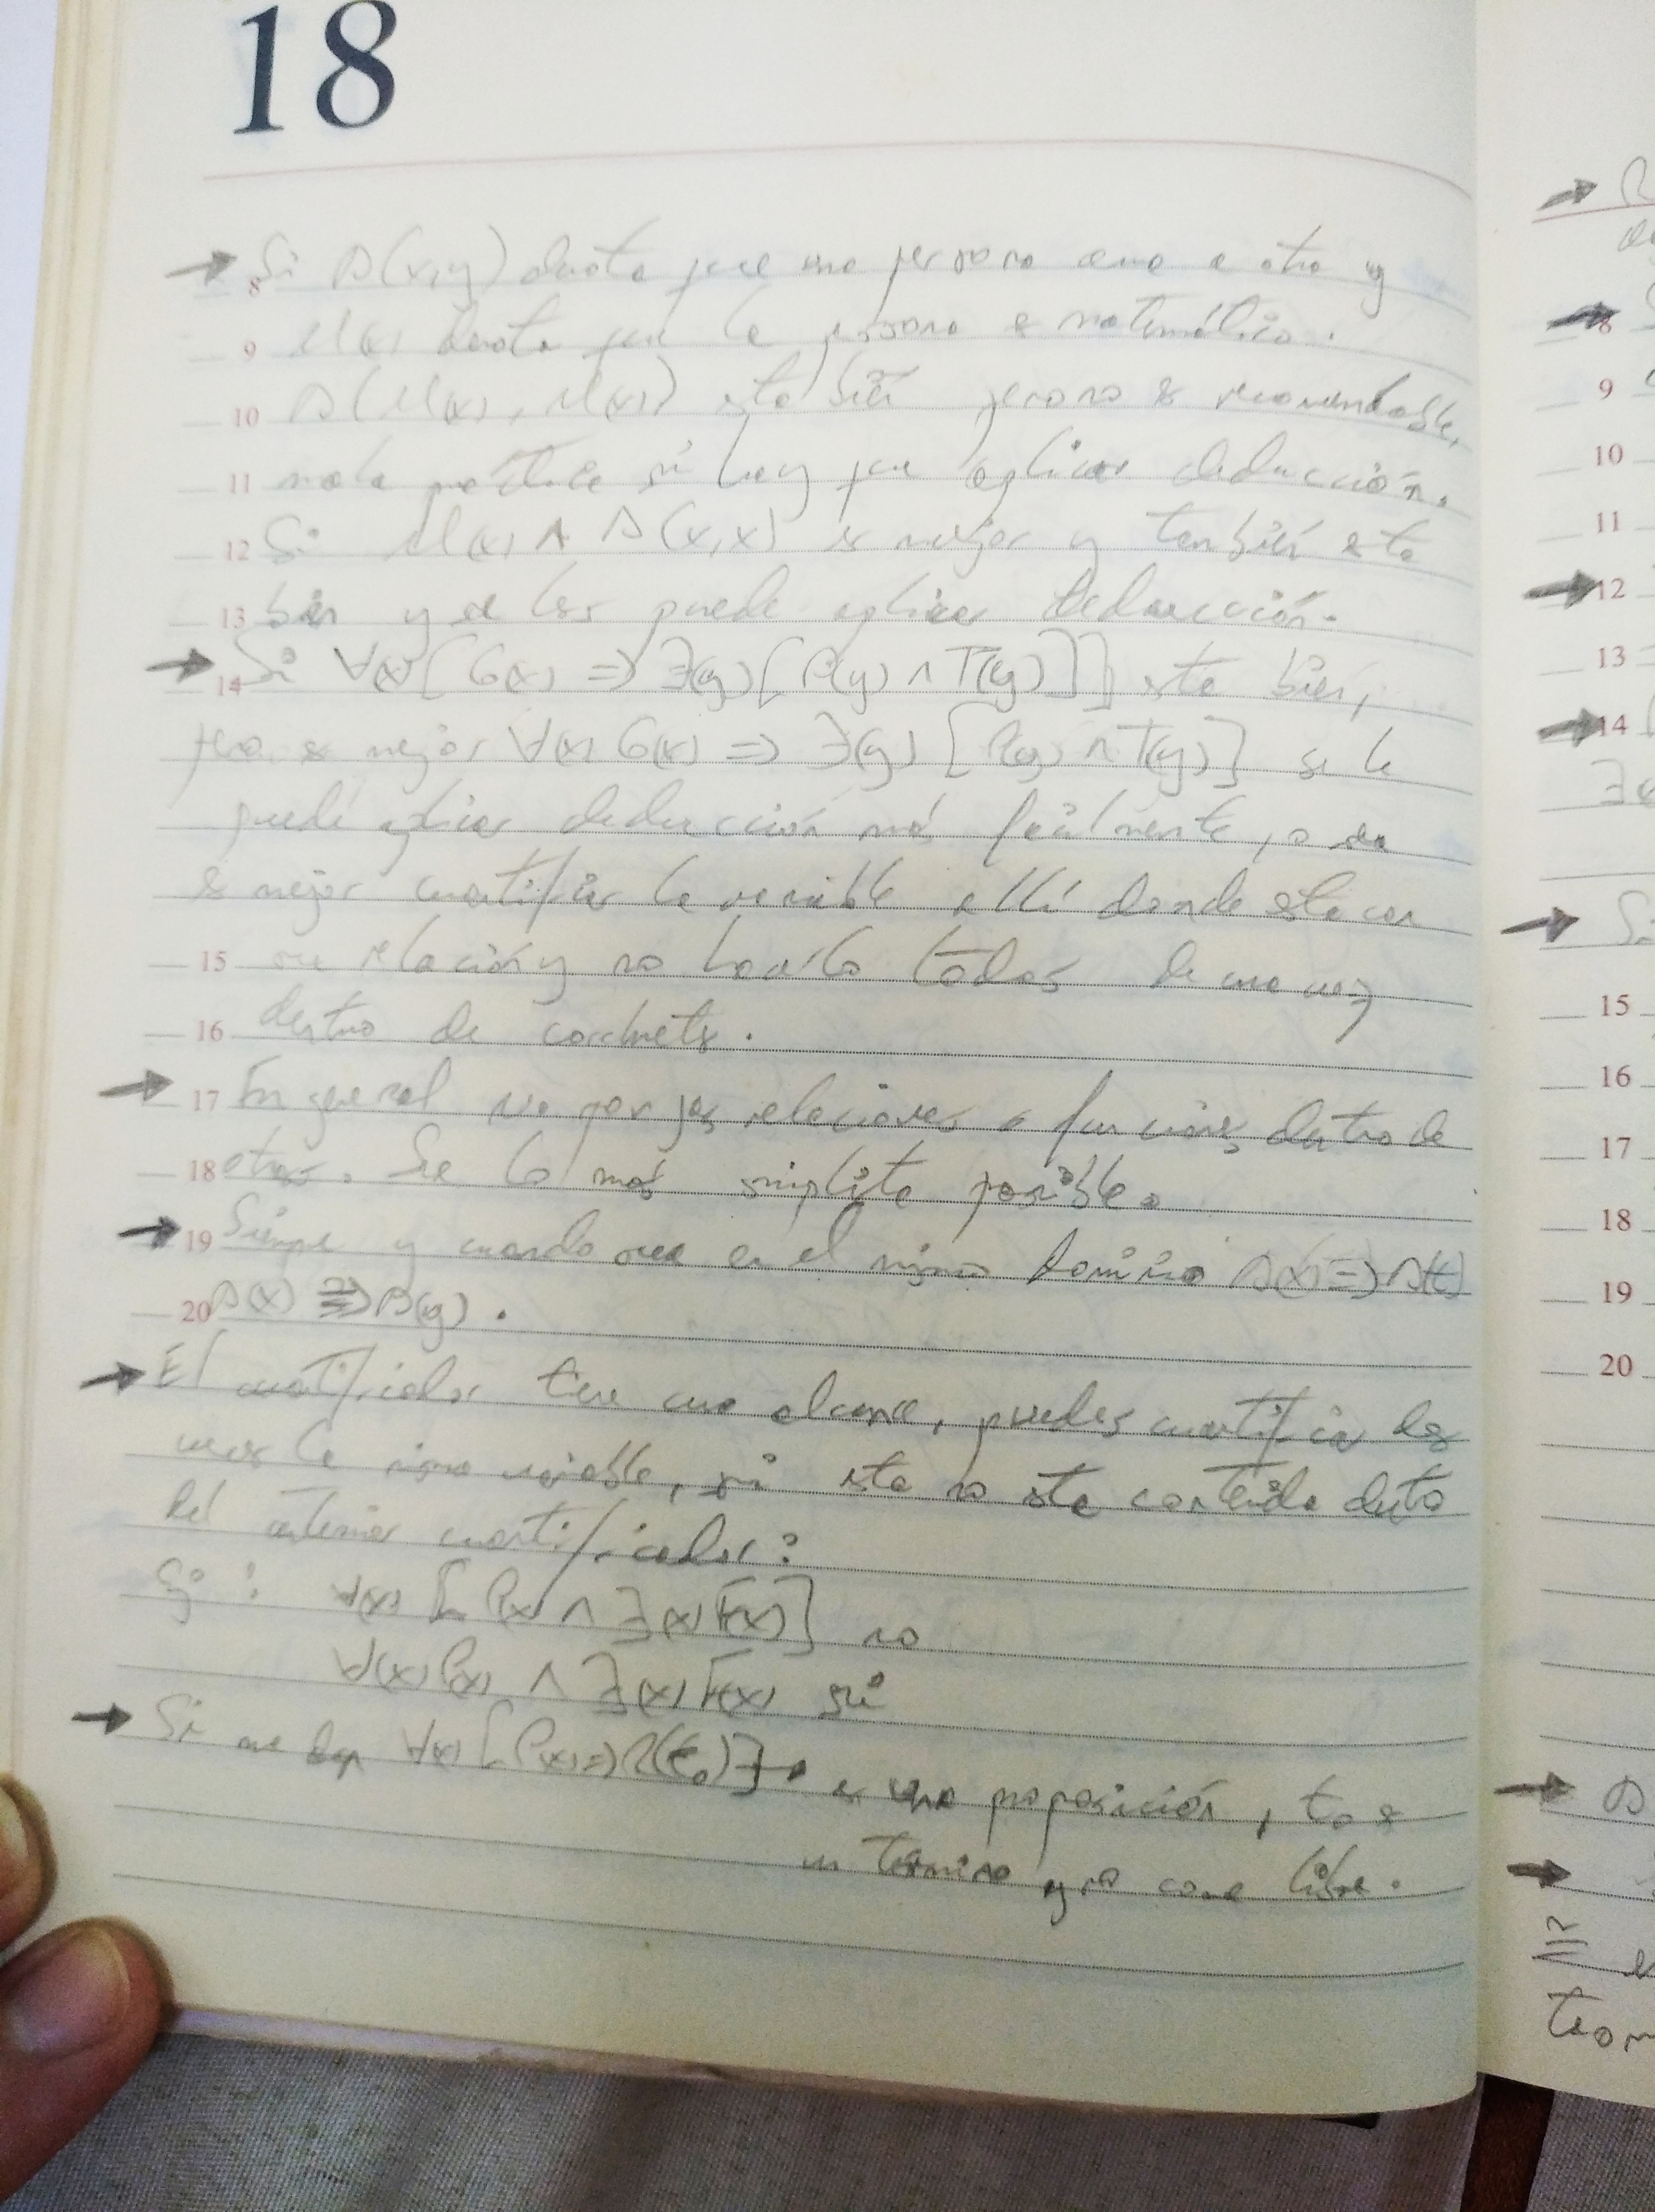 18
Si A(x,y) denota que una persona ama a otra y
8
9 M(x) denota que la persona es matemático.
10 A(M(x), M(x)) esta bien pero no es recomendable,
11 mala práctica si hay que aplicar deducción.
12 Si M(x) ∧ A(x,x) es mejor y también esta
13 bien y se les puede aplicar deducción.
14 Si ∀(x)[G(x) => ∃(y)[P(y) ∧ T(y)]] esta bien,
pero es mejor ∀(x) G(x) => ∃(y) [P(y) ∧ T(y)] se le
puede aplicar deducción más facilmente, o sea
es mejor cuantificar la variable allí donde esta con
15 su relación y no hacerlo todas de una vez
16 dentro de corchetes.
17 En general no pongas relaciones o funciones dentro de
18 otras. Se lo más simplista posible.
19 Siempre y cuando sea en el mismo dominio A(x) => A(t)
20 A(x) => A(y).
El cuantificador tiene una alcance, puedes cuantificar dos
veces la misma variable, si esta no esta contenida dentro
del anterior cuantificador:
Ej: ∀(x) [P(x) ∧ ∃(x) F(x)] no
∀(x) P(x) ∧ ∃(x) F(x) si
Si me dan ∀(x) [P(x) => R(t₀)] → es una proposición, t₀ es
un término y no corre libre.
8
9
10
11
12
13
14
15
16
17
18
19
20